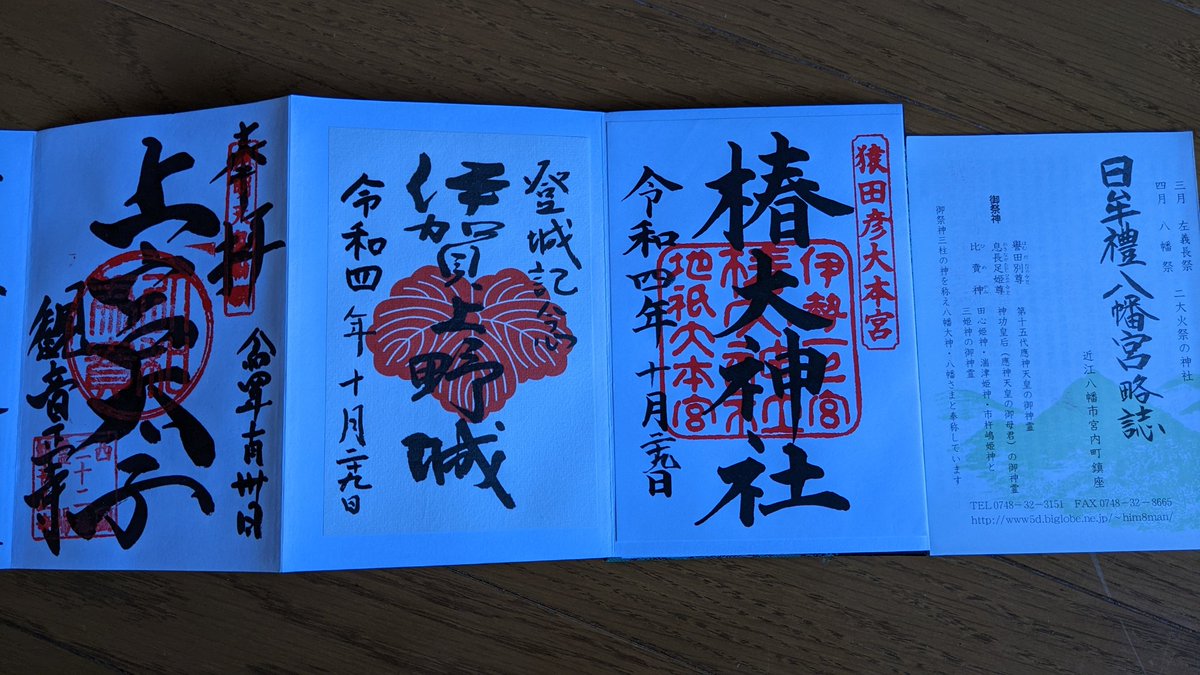 三月 左義長祭 二大火祭の神社
四月 八幡祭
日牟禮八幡宮略誌
近江八幡市宮内町鎮座
御祭神
譽田別尊 第十五代應神天皇の御神霊
息長足姫尊 神功皇后(應神天皇の御母君)の御神霊
比賣神 田心姫神・湍津姫神・市杵嶋姫神と
三姫神の御神霊
御祭神三柱の神を称え八幡大神・八幡さまと奉称しています
TEL 0748-32-3151 FAX 0748-32-8665
http://www5d.biglobe.ne.jp/~him8man/
猿田彦大本宮
椿大神社
伊勢一之宮
地祇大本宮
令和四年十月二十九日
登城記念
伊賀上野城
令和四年十月二十九日
奉拝
観音正寺